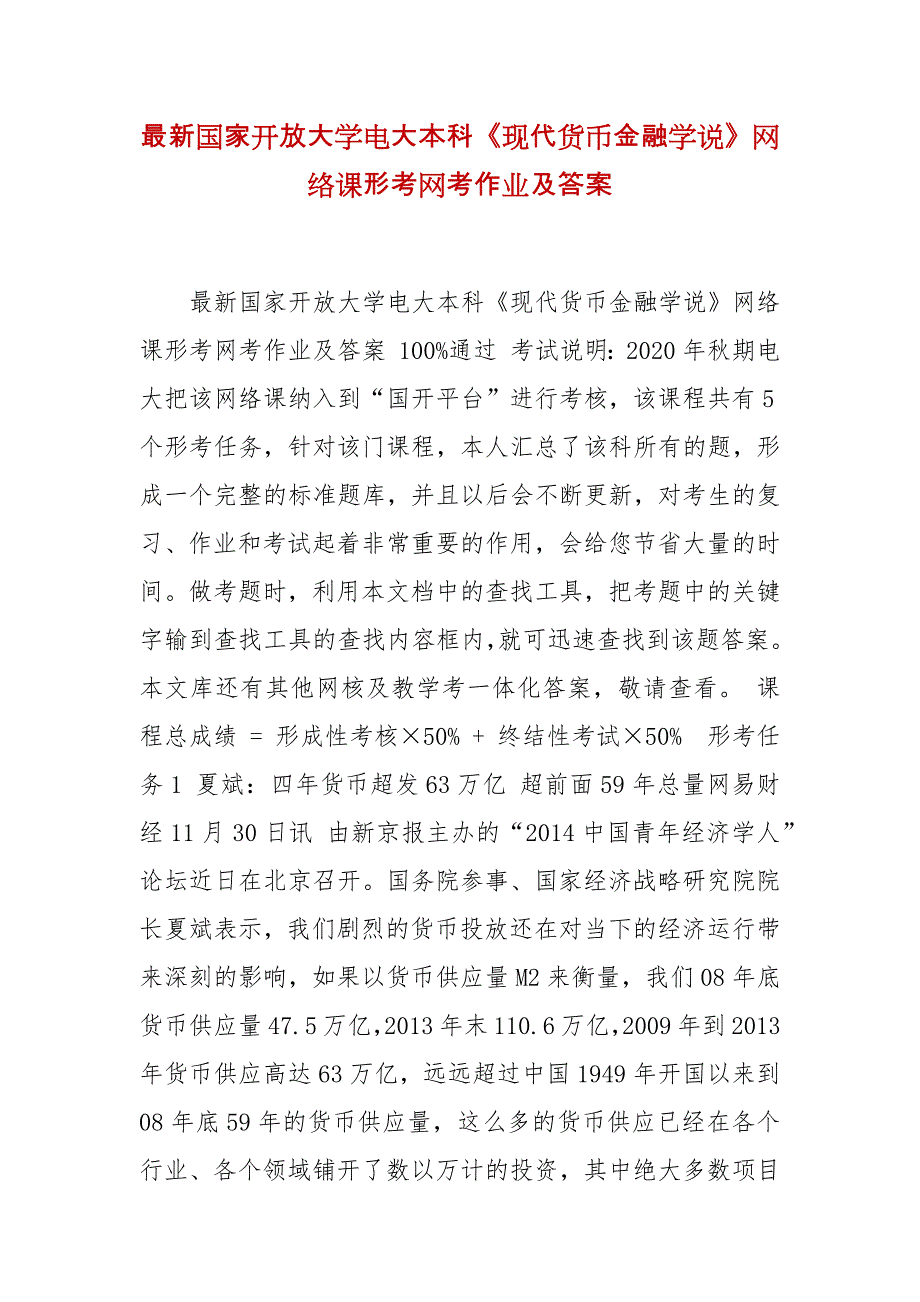 最新国家开放大学电大本科《现代货币金融学说》网
络课形考网考作业及答案
最新国家开放大学电大本科《现代货币金融学说》网络
课形考网考作业及答案 100%通过 考试说明：2020 年秋期电
大把该网络课纳入到“国开平台”进行考核，该课程共有 5
个形考任务，针对该门课程，本人汇总了该科所有的题，形
成一个完整的标准题库，并且以后会不断更新，对考生的复
习、作业和考试起着非常重要的作用，会给您节省大量的时
间。做考题时，利用本文档中的查找工具，把考题中的关键
字输到查找工具的查找内容框内，就可迅速查找到该题答案。
本文库还有其他网核及教学考一体化答案，敬请查看。 课
程总成绩 = 形成性考核×50% + 终结性考试×50% 形考任
务 1 夏斌：四年货币超发 63 万亿 超前面 59 年总量网易财
经 11 月 30 日讯 由新京报主办的“2014 中国青年经济学人”
论坛近日在北京召开。国务院参事、国家经济战略研究院院
长夏斌表示，我们剧烈的货币投放还在对当下的经济运行带
来深刻的影响，如果以货币供应量 M2 来衡量，我们 08 年底
货币供应量 47.5 万亿,2013 年末 110.6 万亿,2009 年到 2013
年货币供应高达 63 万亿，远远超过中国 1949 年开国以来到
08 年底 59 年的货币供应量，这么多的货币供应已经在各个
行业、各个领域铺开了数以万计的投资，其中绝大多数项目